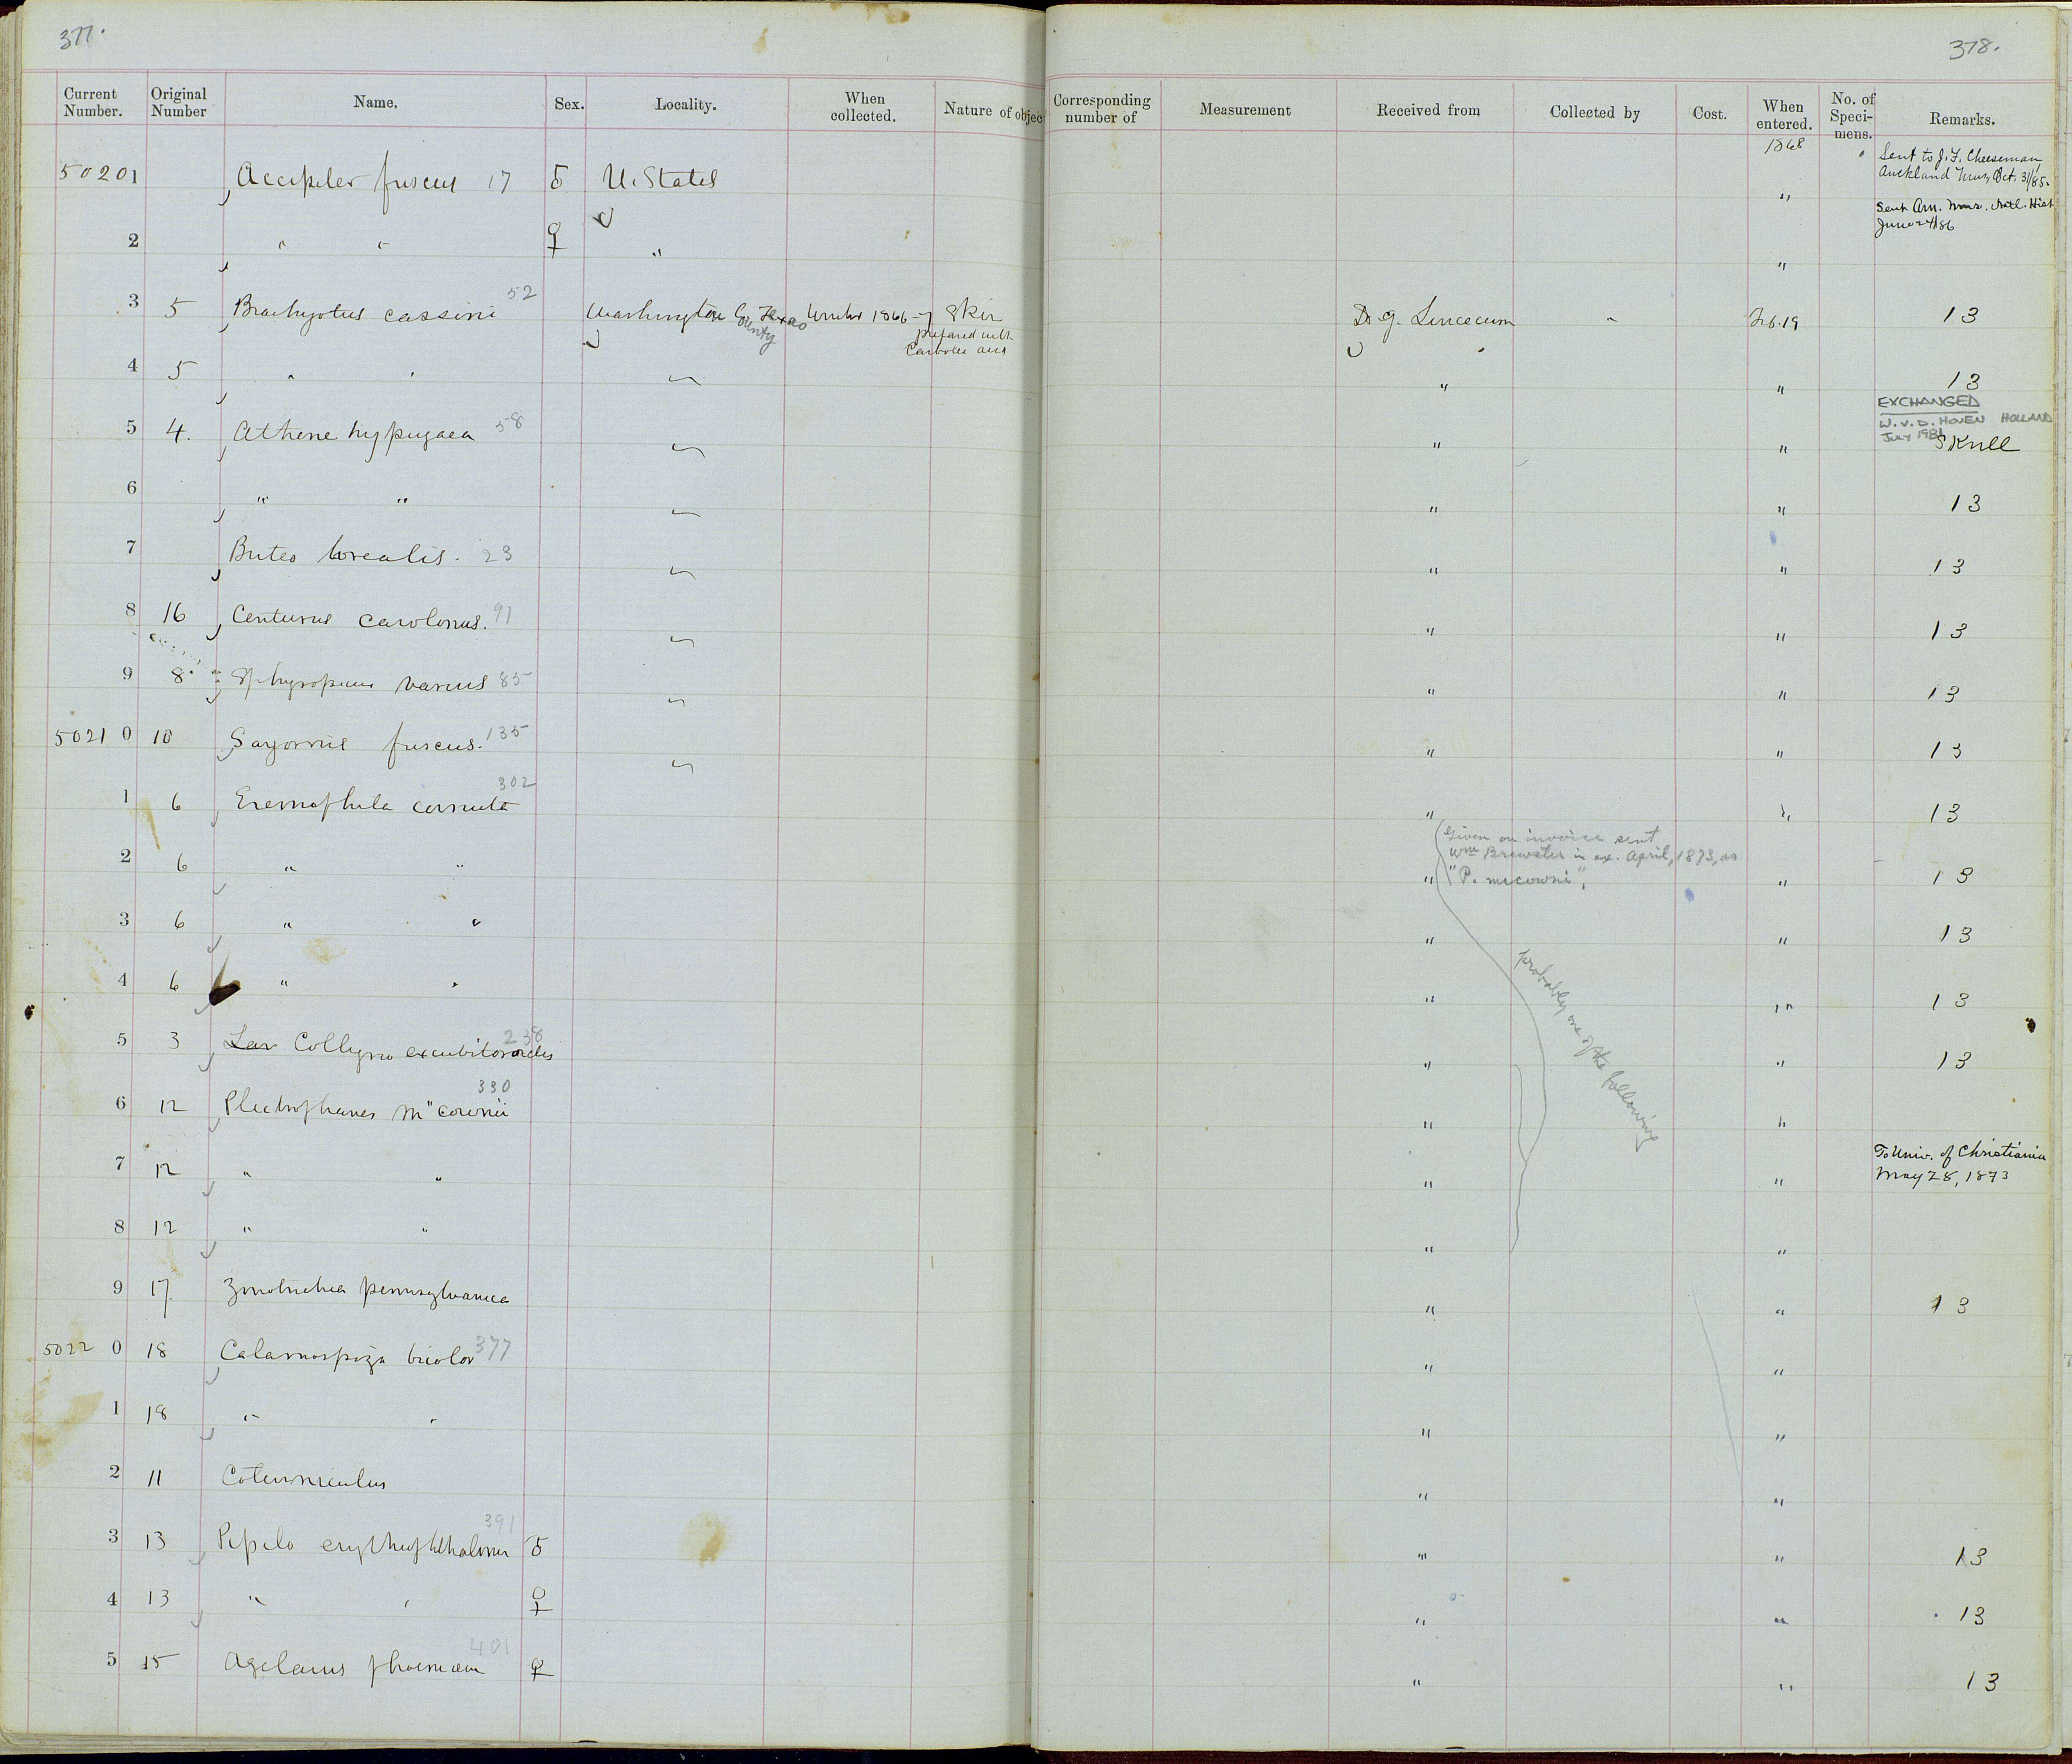 377.
378.
Current Number. Original Number Name. Sex. Locality. When collected. Nature of objec Corresponding number of Measurement Received from Collected by Cost. When entered. No. of Speci-mens. Remarks.
1868
Sent to J. F. Cheeseman,
Auckland Mus, Oct. 31/85.
50201 Accipiter fuscus 17 ♂ U. States "
Sent Am. Mus. Natl. Hist
June 24/86
2 " " ♀ " "
3 5 Brachyotus cassini 52 Washington County Texas Winter 1866-7 Skin D. G. Lincecum " Feb. 19 13
prepared with
Carbolic acid
4 5 " " " " 13
EXCHANGED
W. V. D. HOVEN HOLLAND
JULY 1981
5 4. Athene hypugaea 58 " " Skull
6 " " " " 13
7 Buteo borealis. 23 " " 13
8 16 Centurus carolinus. 91 " " 13
9 8. Sphyropicus varius 85 " " 13
50210 10 Sayornis fuscus. 135 " " 13
1 6 Eremophila cornuta 302 " " 13
Given on invoice sent
Wm Brewster in ex. April, 1873, as
"P. mccowni".
2 6 " " " " 13
3 6 " " " " 13
4 6 " " " " 13
probably one of the following
5 3 Lan Collyrio excubitoroides 238 " " 13
6 12 Plectrophanes McCownii 330 " "
7 12 " " " " To Univ. of Christiania
May 28, 1873
8 12 " " " "
9 17 Zonotrichia pennsylvanica " " 13
50220 18 Calamospiza bicolor 377 " "
1 18 " " " "
2 11 Coturniculus " "
3 13 Pipilo erythrophthalmus 391 ♂ " " 13
4 13 " " ♀ " " 13
5 15 Agelaius phoeniceus 401 ♀ " " 13